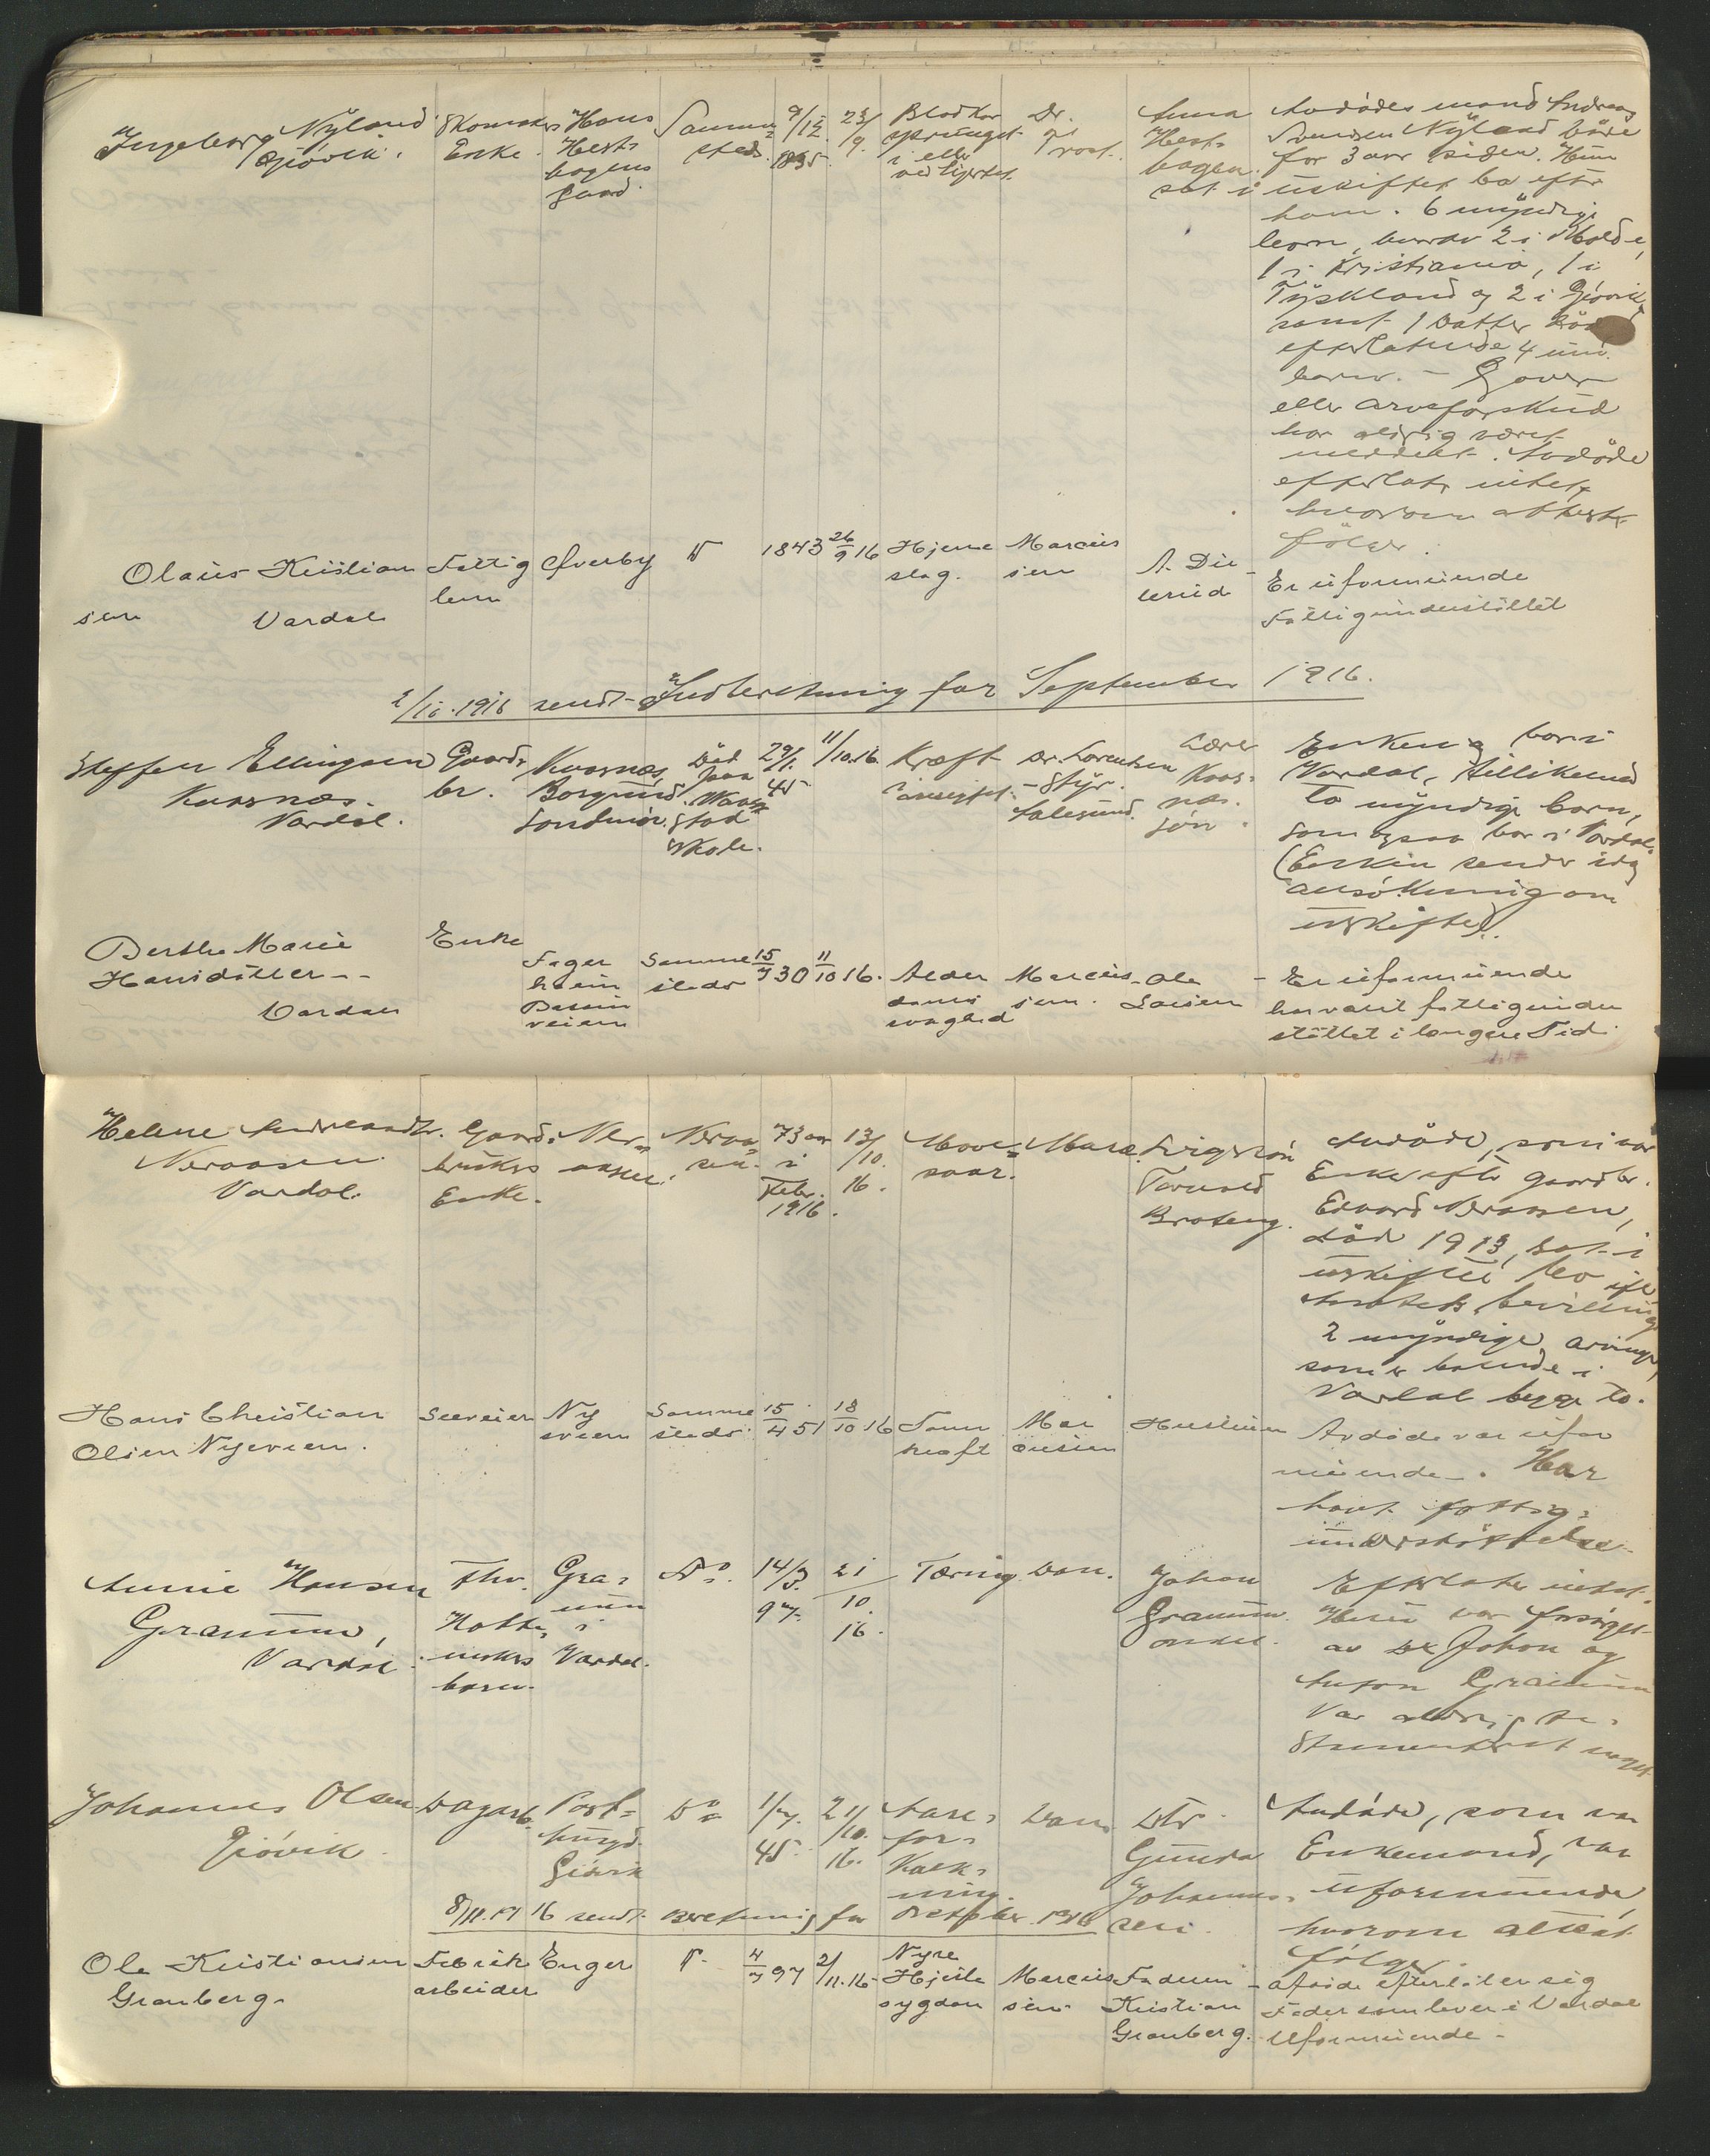 Ingeborg Nyland
Gjövik.
Skomakers
Enke.
Hans
Hests
hagens
gaard.
Samme
steds.
9/12
1835
23/9.
Blodkar
sprunget
i eller
ved hjertet
Dr.
Prost.
Anna
Hests
hagen.
Avdödes mand Andreas
Nyland döde
for 3 aar siden. Hun
sat i uskiftet bo efter
ham. 6 myndige
barn, hvorav 2 i Molde,
1 i Kristiania, 1 i
Tyskland og 2 i Gjövik,
samt 1 datter död
efterlatende 4 um.
barn. - Gaver
eller arveforskud
har aldrig været
meddelt. Avdöde
efterlater intet,
hvorom attest
fölger.
Olaus Kristian
sen Vardal
Fattig
lem
Överby
D
1843
26/9 16
Hjerne
slag.
Marcus
sen
Er uformuende
Fattigunderstöttet
2/10.1916 sendt Indberetning for September 1916.
Steffen Ellingsen
Kvasnæs.
Vardal.
Gaard-
br.
Kvasnæs,
Borgund
Söndmör.
Ved
skole.
29/1.
45
11/10.16.
Kræft
i ansigtet.
Dr. Lorentzen
- Styr.
Aalesund.
Lærer
Kvas-
næs.
sön.
Enken bor i
Vardal, tillikemed
to myndige barn,
som ogsaa bor i Vardal.
(Enken sender idag
ansökning om
uskifte).
Berthe Marie
Hansdatter - -
Vardal
Enke
Fager
heim
veien
Samme
steds
15/7 30
11/10 16.
Alder
doms
svaghed
Marcus
sen.
Ole
Larsen
- Er uformuende
har vært fattigunder
stöttet i længere Tid.
Helene Andreasdtr.
Neraasen
Vardal.
Gaard-
brukers
Enke.
Ner-
aasen.
Neraa-
sen.
73 aar
i
Febr.
1916.
13/10.
16.
Mave-
saar.
Marc.
Torvald
Brateng.
Avdöde, som var
Enke efter gaardbr.
Edvard Neraasen,
död 1913, sat i
uskiftet bo ifl.
bevilling
2 myndige arvinger,
som er boende i
Vardal begge to.
Hans Christian
Olsen Nyeveien.
Ny
eveien
Samme
steds
15/4 51
18/10 16
Mar
cusen
Hustruen
Avdöde var ufor
muende. Har
havt fattig-
understöttelse.
Annie Hansen
Graum,
Vardal.
Fhv.
barn.
Gra-
um
i
Vardal.
Do.
14/3.
97.
21/10.
16.
Tæring
Dan.
Johan
Graum.
onkel.
Efterlater intet.
Hun var forsörget
av Johan og
Anton Graum
Var aldrig te-
stamentert noget
Johannes Olsen
Gjövik.
Dagarb.
Gjövik
Do
1/7.
45.
21/10.
16.
Aare-
for-
kalk-
ning.
Dan
Dtr.
Gunda
Johannes-
sen.
Avdöde, som var
Enkemand, var
uformuende,
hvorom attest
fölger.
8/11.1916 sendt Beretning for Oktober 1916
Ole Kristiansen
Granberg.
Fabrik
arbeider
Enger
D.
4/7 97
2/11.16
Nyre
Hjerte
sygdom
Marcus
sen.
Faderen
Kristian
Granberg.
- Afdöde efterlater sig
Fader som lever i Vardal
Uformuende -